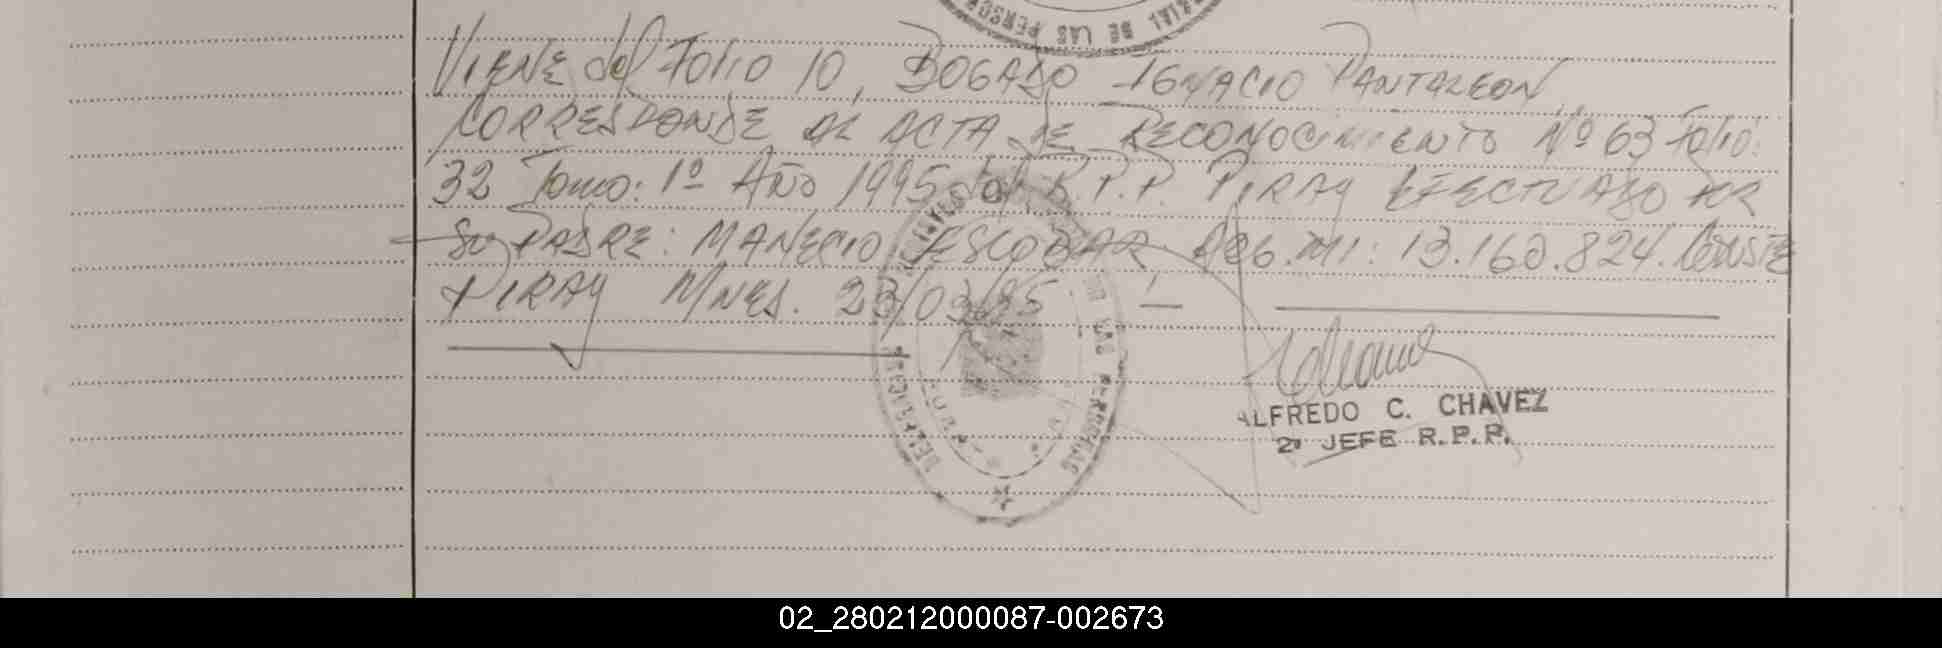 DE LAS PERSON
VIENE del Folio 10, BOGADO IGNACIO PANTALEON
CORRESPONDE AL ACTA DE RECONOCIMIENTO Nº 63 Folio:
32 Tomo: 1º Año 1995 del R.P.P. PIRAY EFECTUADO POR
SU PADRE: MANECIO ESCOBAR ARG. MI: 13.160.824. CONSTE
PIRAY MNES. 23/03/95
DE LAS PERSONAS
ALFREDO C. CHAVEZ
2º JEFE R.P.P.
02_280212000087-002673